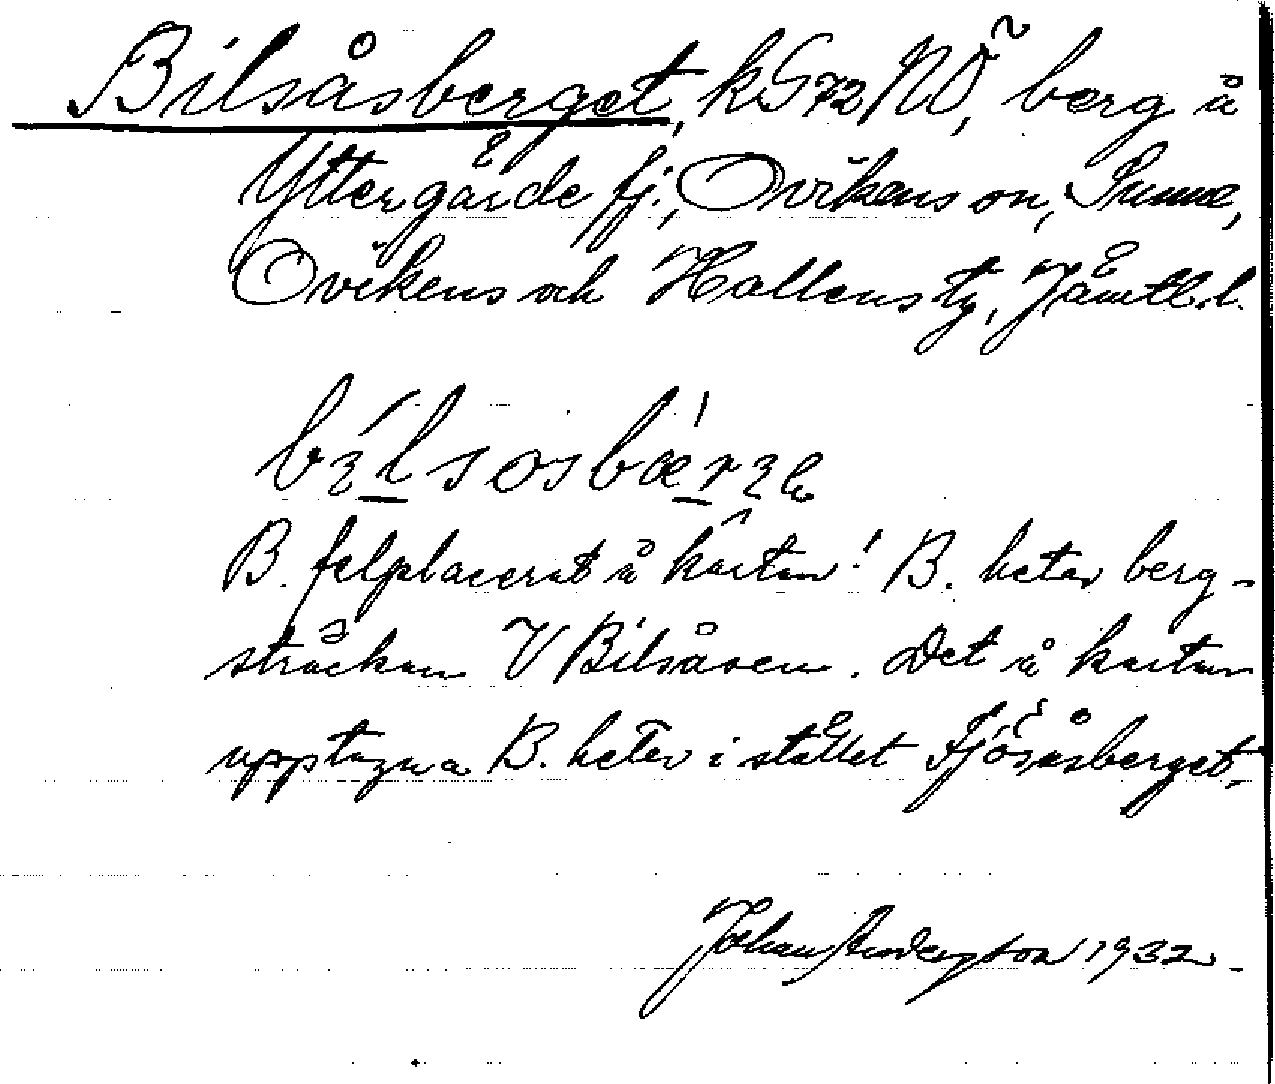 Bilsåsberget, kG72NÖ, berg å
Yttergärde fj., Ovikens sn, Sunne,
Ovikens och Hallens tg, Jämtl. l.
B. felplacerat å kartan! B. heter berg-
sträckan V Bilsåsen. Det å kartan
upptagna B. heter i stället Fjösåsberget.
Johan Anderson 1932